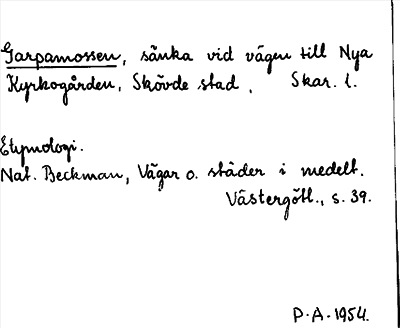 Garpamossen, sänka vid vägen till Nya
Kyrkogården, Skövde stad, Skar. l.
Etymologi.
Nat. Beckman, Vägar o. städer i medelt.
Västergötl., s. 39.
P.A. 1954.